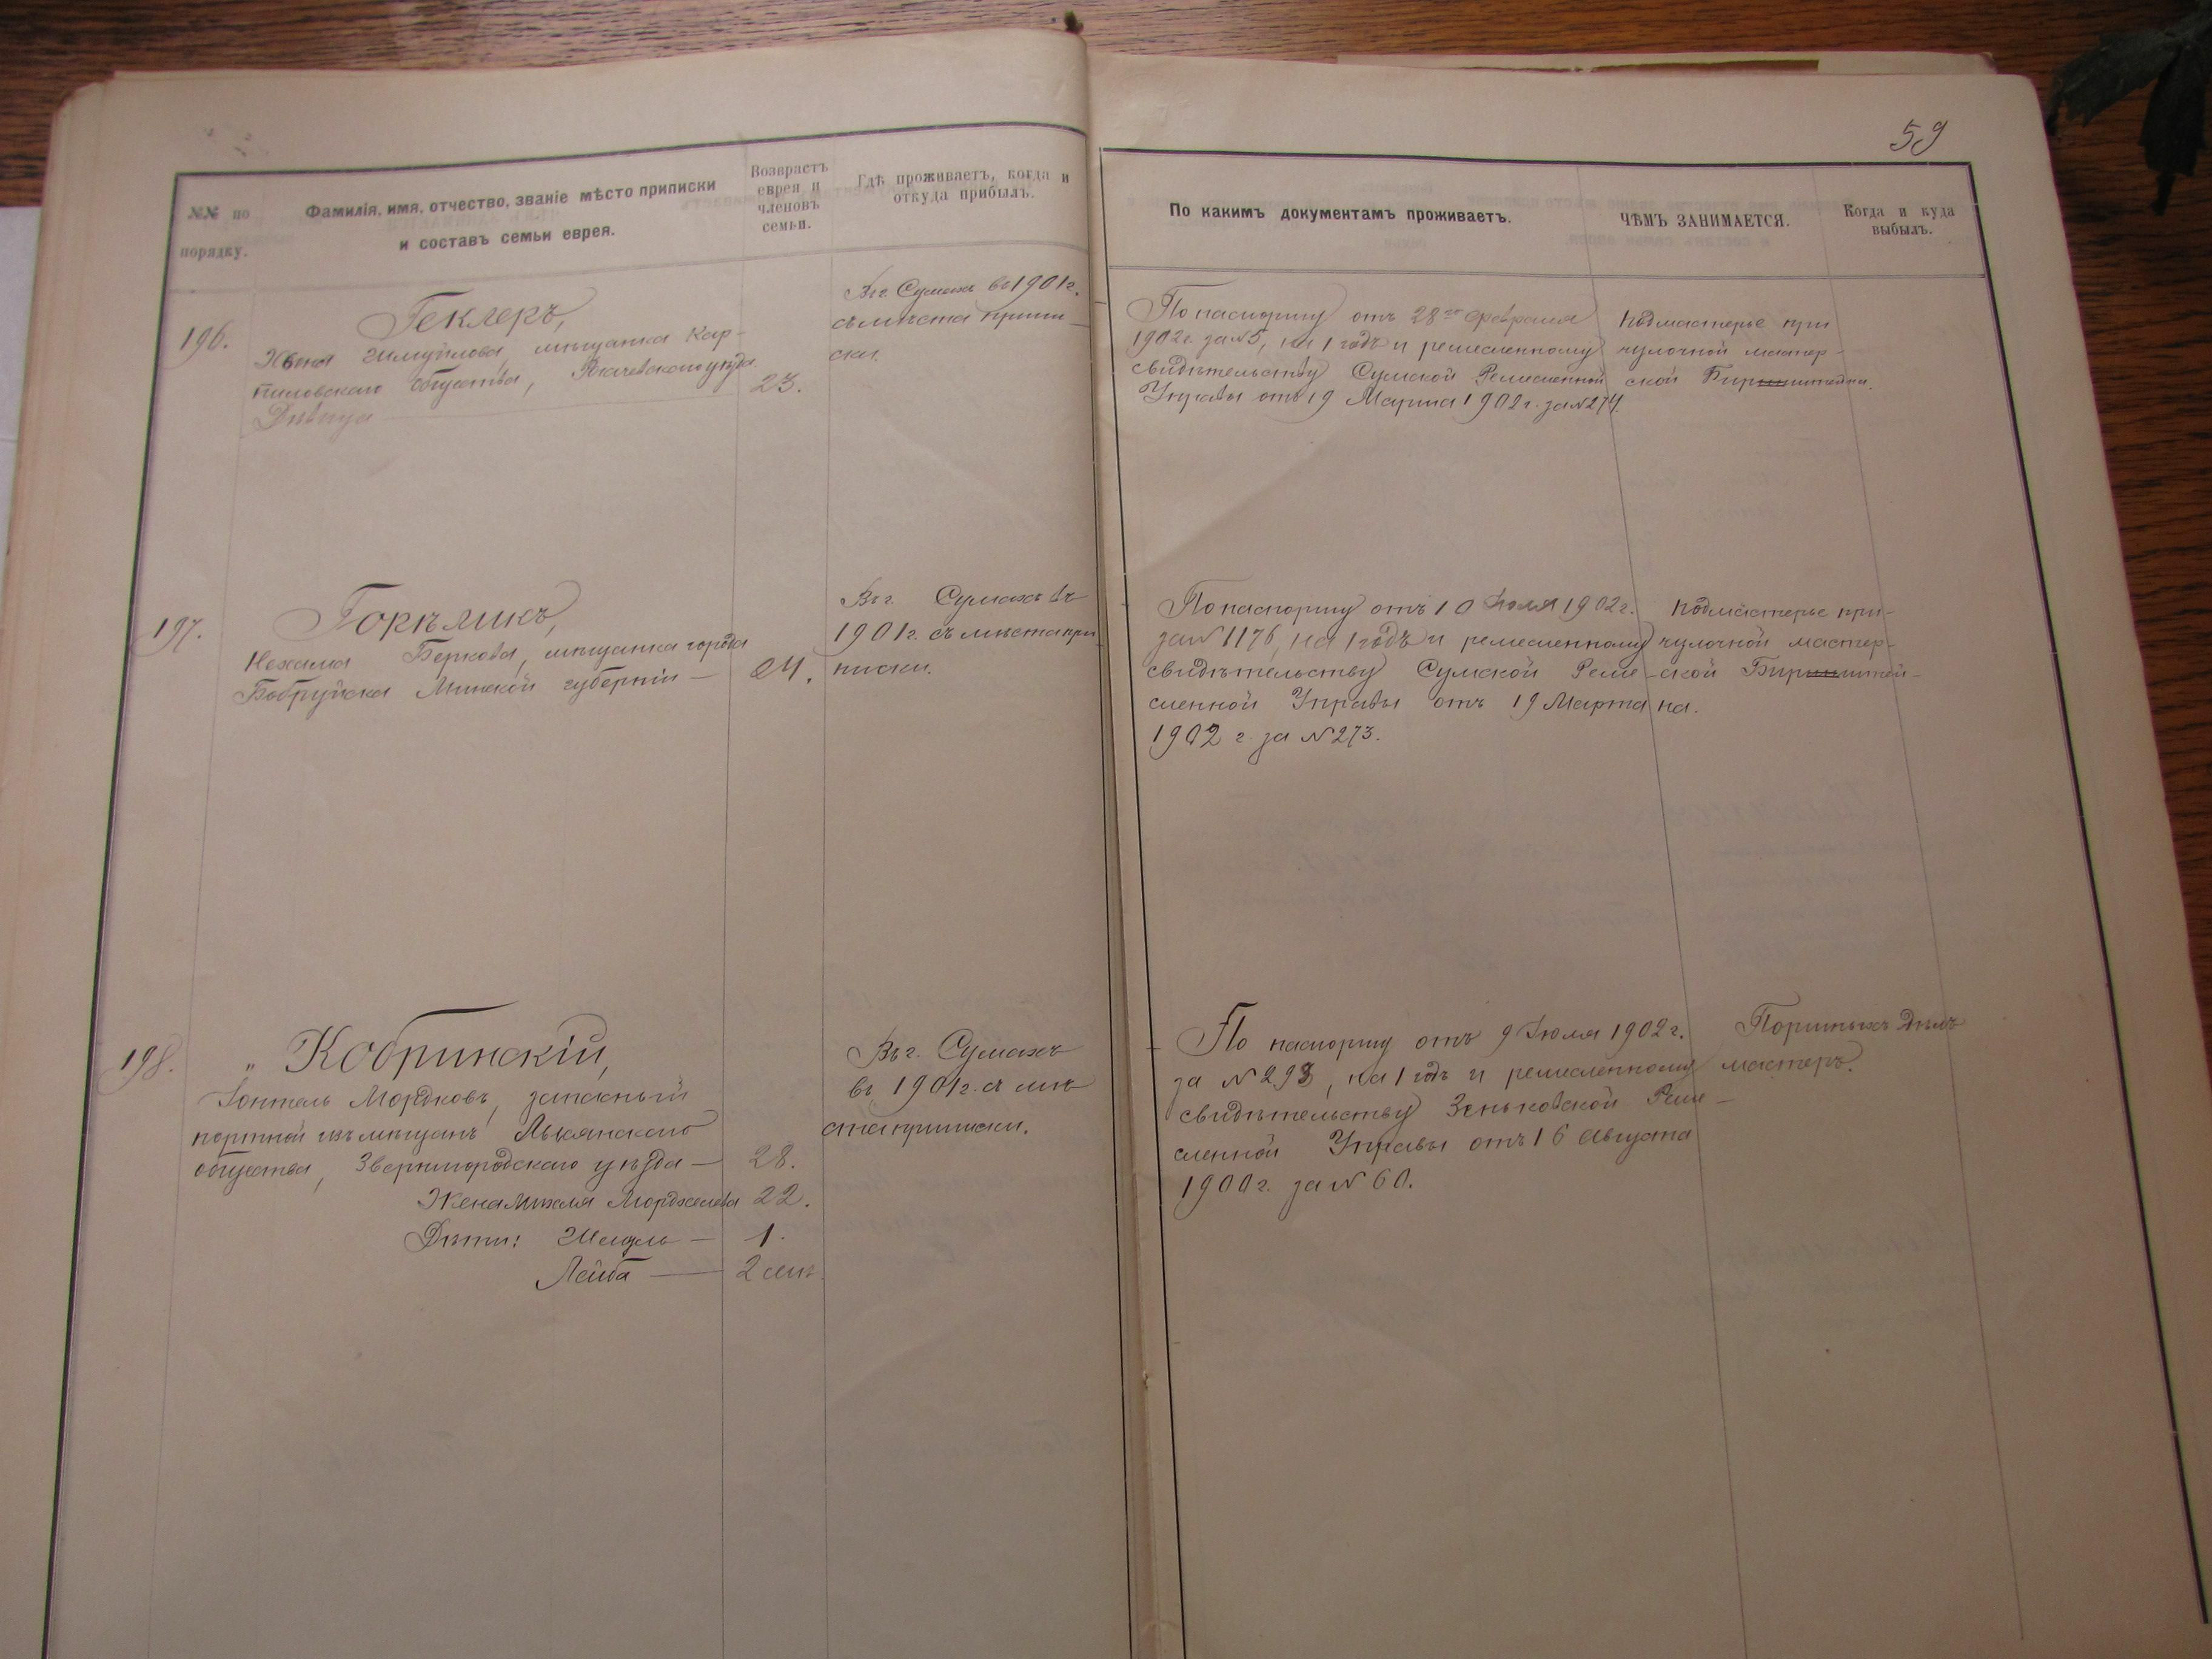 59
№№ по порядку.
Фамилія, имя, отчество, званіе мѣсто приписки
и составъ семьи еврея.
Возврастъ
еврея и
членовъ
семьи.
Гдѣ проживаетъ, когда и
откуда прибылъ.
По какимъ документамъ проживаетъ.
ЧѢМЪ ЗАНИМАЕТСЯ.
Когда и куда
выбылъ.
196.
Геклеръ,
мѣщанка Кар-
пиловскаго общества, Рогачевскаго уѣзда.
Дѣвица
23.
Въ г. Сумахъ въ 1901 г.
съ мѣста припи-
ски.
По паспорту отъ 28го Февраля
1902 г. за №5, на 1 годъ и ремесленному
свидѣтельству Сумской Ремесленной
Управы отъ 19 Марта 1902 г. за №274.
Подмастерье при
чулочной мастер-
ской
197.
Горѣликъ,
Нехама Беркова, мѣщанка города
Бобруйска Минской губерніи —
24.
Въ г. Сумахъ въ
1901 г. съ мѣста при
писки.
По паспорту отъ 10 Іюля 1902 г.
за №1176, на 1 годъ и ремесленному
свидѣтельству Сумской Реме-
сленной Управы отъ 19 Марта
1902 г. за №273.
Подмастерье при-
чулочной мастер-
ской
на.
198.
" Кобринскій,
Мордковъ, запасный
портной изъ мѣщанъ
общества, Звенигородскаго уѣзда —
28.
Жена 22.
Дѣти: — 1.
Лейба — 2 мѣс.
Въ г. Сумахъ
въ 1901 г. съ мѣ
ста приписки.
По паспорту отъ 9 Іюля 1902 г.
за № 298, на 1 годъ и ремесленному
свидѣтельству Зеньковской Реме-
сленной Управы отъ 16 Августа
1900 г. за № 60.
Портныхъ дѣлъ
мастеръ.